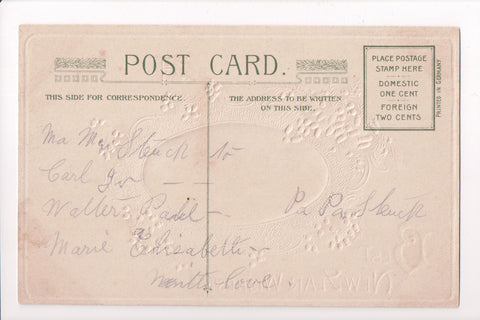 POST CARD.
PLACE POSTAGE
STAMP HERE
DOMESTIC
ONE CENT
FOREIGN
TWO CENTS
PRINTED IN GERMANY
THIS SIDE FOR CORRESPONDENCE.
THE ADDRESS TO BE WRITTEN
ON THIS SIDE.
Ma Ma Steuck to
Carl Jr — —
Walter Paul —
Pa Pa Steuck
Marie Elisabeth
with love.